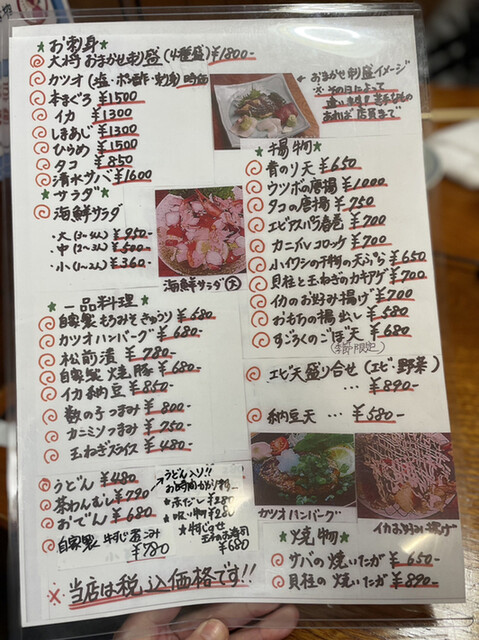 ★お刺身★
大将おまかせ刺盛(4種盛)¥1800-
カツオ(塩・ポン酢・刺身)時価
本まぐろ ¥1500
イカ ¥1300
しまあじ ¥1300
ひらめ ¥1500
タコ ¥850
清水サバ ¥1600
★サラダ★
海鮮サラダ
・大(3~4人) ¥950-
・中(2~3人) ¥500-
・小(1~2人) ¥360-
← おまかせ刺盛イメージ
※その日によって
違います!苦手なもの
あれば店員まで
海鮮サラダ(大)
★一品料理★
自家製もろみそきゅうり ¥680
カツオハンバーグ ¥680-
松前漬 ¥780-
自家製焼豚 ¥680-
イカ納豆 ¥850-
数の子つまみ ¥800
カニミソつまみ ¥750-
玉ねぎスライス ¥480-
うどん ¥480
茶わんむし ¥790
おでん ¥680
自家製牛すじ煮こみ
¥780
うどん入り!!
お時間かかり〼
★赤だし ¥280
★吸い物 ¥280
★牛すじすせ
玉子のお寿司
¥680
★揚物★
青のり天 ¥650
ウツボの唐揚 ¥1000
タコの唐揚 ¥750
エビアスパラ春巻 ¥700
カニクリームコロッケ ¥700
小イワシの干物の天ぷら ¥650
貝柱と玉ねぎのカキアゲ ¥700
イカのお好み揚げ ¥700
おもちの揚げ出し ¥580
すごろくのごぼ天 ¥680
(季節限定)
エビ天盛り合せ(エビ・野菜)
… ¥890-
納豆天 … ¥580-
カツオハンバーグ
イカお好み揚げ
★焼物★
サバの焼いたが ¥650-
貝柱の焼いたが ¥890-
※当店は税込価格です!!